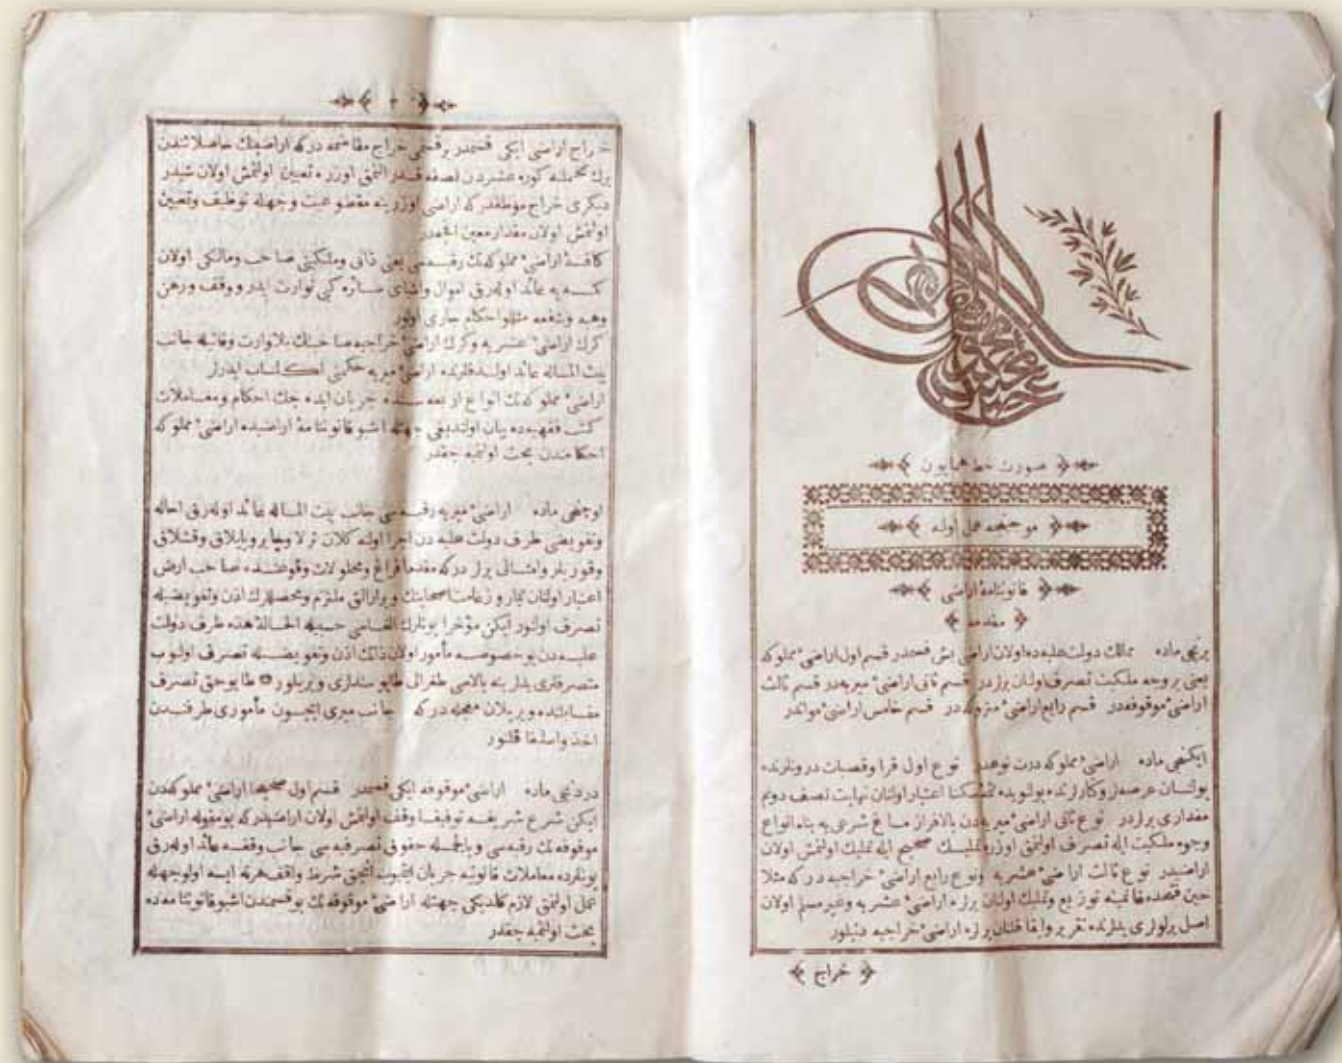 صورت خط همایون
موجبنجه عمل اوله
قانوننامهٔ اراضی
مقدمه
برنجی ماده ممالك دولت علیه ده اولان اراضی بش قسمدر قسم اول اراضیٔ مملوكه
یعنی بر وجه ملكیت تصرف اولنان یرلردر قسم ثانی اراضیٔ میریه در قسم ثالث
اراضیٔ موقوفه در قسم رابع اراضیٔ متروكه در قسم خامس اراضیٔ مواتدر
ایكنجی ماده اراضیٔ مملوكه درت نوعدر نوع اول قرا وقصبات دروننده
بولنان عرصه لر وكنارلرنده بولنوبده تتمهٔ سكنا اعتبار اولنان نهایت نصف دونم
مقداری یرلردر نوع ثانی اراضیٔ میریه دن بالافراز مساغ شرعی یه بناء انواع
وجوه ملكیت ایله تصرف اولنمق اوزره تملیك صحیح ایله تملیك اولنمش اولان
اراضیدر نوع ثالث اراضیٔ عشریه ونوع رابع اراضیٔ خراجیه در كه مثلا
حین فتحده غانمینه توزیع وتملیك اولنان یرلره اراضیٔ عشریه وغیر مسلم اولان
اصل یرلولری یدلرنده تقریر وابقا قلنان یرلره اراضیٔ خراجیه دینلور
خراج
٢
خراج اراضی ایكی قسمدر بر قسمی خراج مقاسمه در كه اراضینك حاصلاتندن
یرك تحملنه كوره عشردن نصفه قدر النمق اوزره تعیین اولنمش اولان شیدر
دیكری خراج موظفدر كه اراضی اوزرینه مقطوعیت وجهله توظیف وتعیین
اولنمش اولان مقدار معین اقچه در
كافهٔ اراضیٔ مملوكه نك رقبه سی یعنی ذاتی وملكیتی صاحب ومالكی اولان
كسه یه عائد اوله رق اموال واشیای سائره كبی توارث ایدر ووقف ورهن
وهبه وشفعه مثللو احكام جاری اولور
كرك اراضیٔ عشریه وكرك اراضیٔ خراجیه صاحبنك بلا وارث وفاتیله جانب
بیت الماله عائد اولدقلرنده اراضیٔ میریه حكمنی اكتساب ایدرلر
اراضیٔ مملوكه نك انواع اربعه سنده جریان ایده جك احكام ومعاملات
كتب فقهیه ده بیان اولندیغی جهتله اشبو قانوننامهٔ اراضیده اراضیٔ مملوكه
احكامندن بحث اولنمیه جقدر
اوچنجی ماده اراضیٔ میریه رقبه سی جانب بیت الماله عائد اوله رق احاله
وتفویضی طرف دولت علیه دن اجرا اوله كلان ترلا وچایر ویایلاق وقشلاق
وقوریلر وامثالی یرلر در كه مقدما فراغ ومحلولات وقوعنده صاحب ارض
اعتبار اولنان تیمار وزعامت اصحابنك وبر ارالق ملتزم ومحصللرك اذن وتفویضیله
تصرف اولنور ایكن مؤخرا بونلرك الغاسی حسبیله الحالة هذه طرف دولت
علیه دن بو خصوصه مأمور اولان ذاتك اذن وتفویضیله تصرف اولنوب
متصرفلری یدلرینه بالاسی طغرالی طاپو سندلری ویریلور طاپو حق تصرف
مقابلنده ویریلان معجله در كه جانب میری ایچون مأموری طرفندن
اخذ واستیفا قلنور
دردنجی ماده اراضیٔ موقوفه ایكی قسمدر قسم اول صحیحا اراضیٔ مملوكه دن
ایكن شرع شریفه توفیقا وقف اولنمش اولان اراضیدر كه بو مقوله اراضیٔ
موقوفه نك رقبه سی وبالجمله حقوق تصرفیه سی جانب وقفه عائد اوله رق
بونلرده معاملات قانونیه جریان ایتمیوب انجق شرط واقف هر نه ایسه اولوجهله
عمل اولنمق لازم كلدیكی جهتله اراضیٔ موقوفه نك بو قسمندن اشبو قانوننامه ده
بحث اولنمیه جقدر